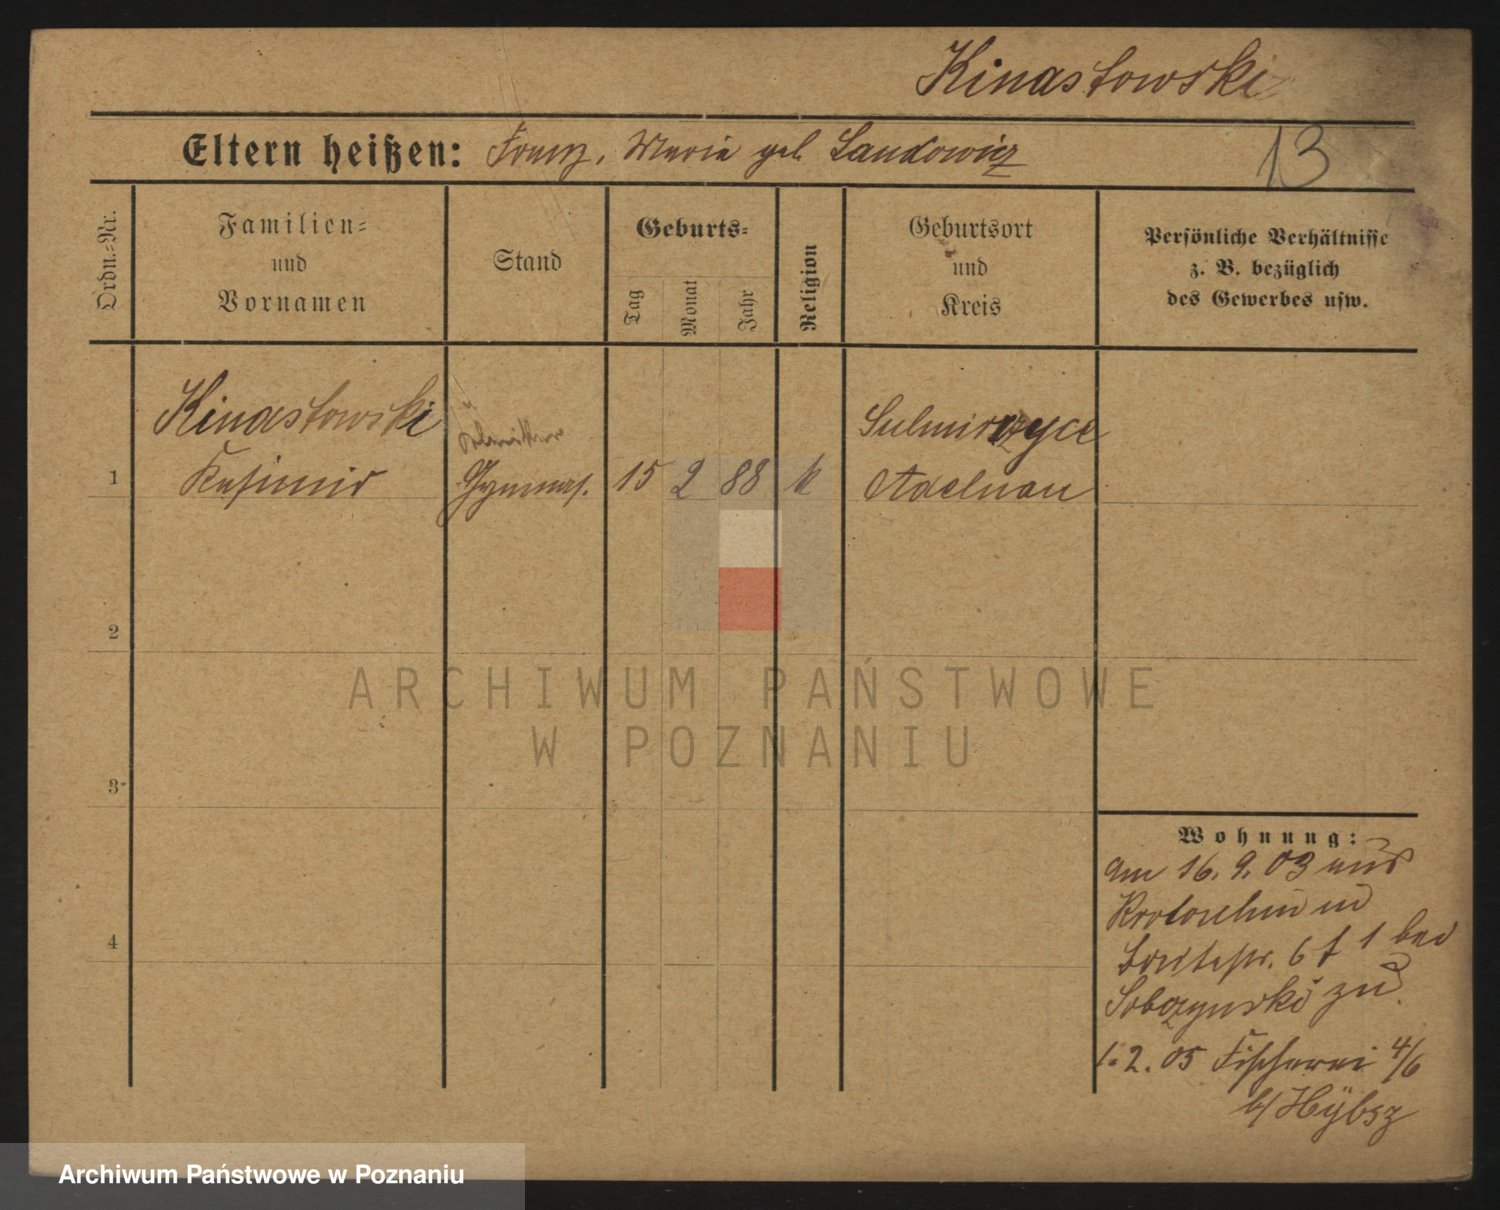 Kinastowski
Eltern heißen: Franz, Maria geb. Landowicz
13
Ordn.-Nr.
Familien-
und
Vornamen
Stand
Geburts-
Tag
Monat
Jahr
Religion
Geburtsort
und
Kreis
Persönliche Verhältnisse
z. B. bezüglich
des Gewerbes usw.
1
Kinastowski
Kasimir
Gymnas.
15 2 88 k
Sulmirzyce
Adelnau
2
3
4
Wohnung:
am 16. 9. 03 aus
Krotoschin in
Breitestr. 6 I bei
Sobczynski zu.
1. 2. 05 Fischerei 4/6
b/ Hybsz
ARCHIWUM PAŃSTWOWE
W POZNANIU
Archiwum Państwowe w Poznaniu